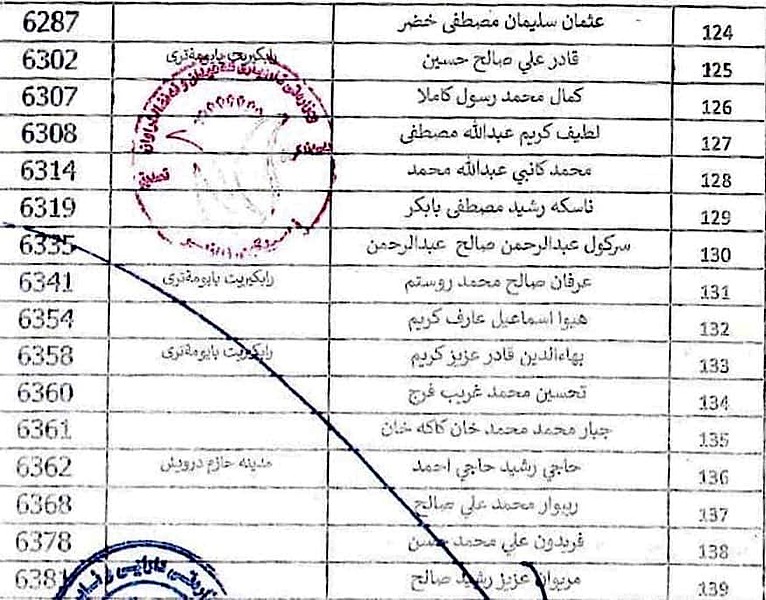 124 عثمان سليمان مصطفى خضر 6287
125 قادر علي صالح حسين رابكيريت بايومةتری 6302
126 كمال محمد رسول كاملا 6307
127 لطيف كريم عبدالله مصطفى 6308
128 محمد كانبي عبدالله محمد 6314
129 ناسكه رشيد مصطفى بابكر 6319
130 سركول عبدالرحمن صالح عبدالرحمن 6335
131 عرفان صالح محمد روستم رابكيريت بايومةتری 6341
132 هيوا اسماعيل عارف كريم 6354
133 بهاءالدين قادر عزيز كريم رابكيريت بايومةتری 6358
134 تحسين محمد غريب فرج 6360
135 جبار محمد محمد خان كاكه خان 6361
136 حاجي رشيد حاجي احمد مدينه حازم درويش 6362
137 ريبوار محمد علي صالح 6368
138 فريدون علي محمد حسن 6378
139 مريوان عزيز رشيد صالح 6381